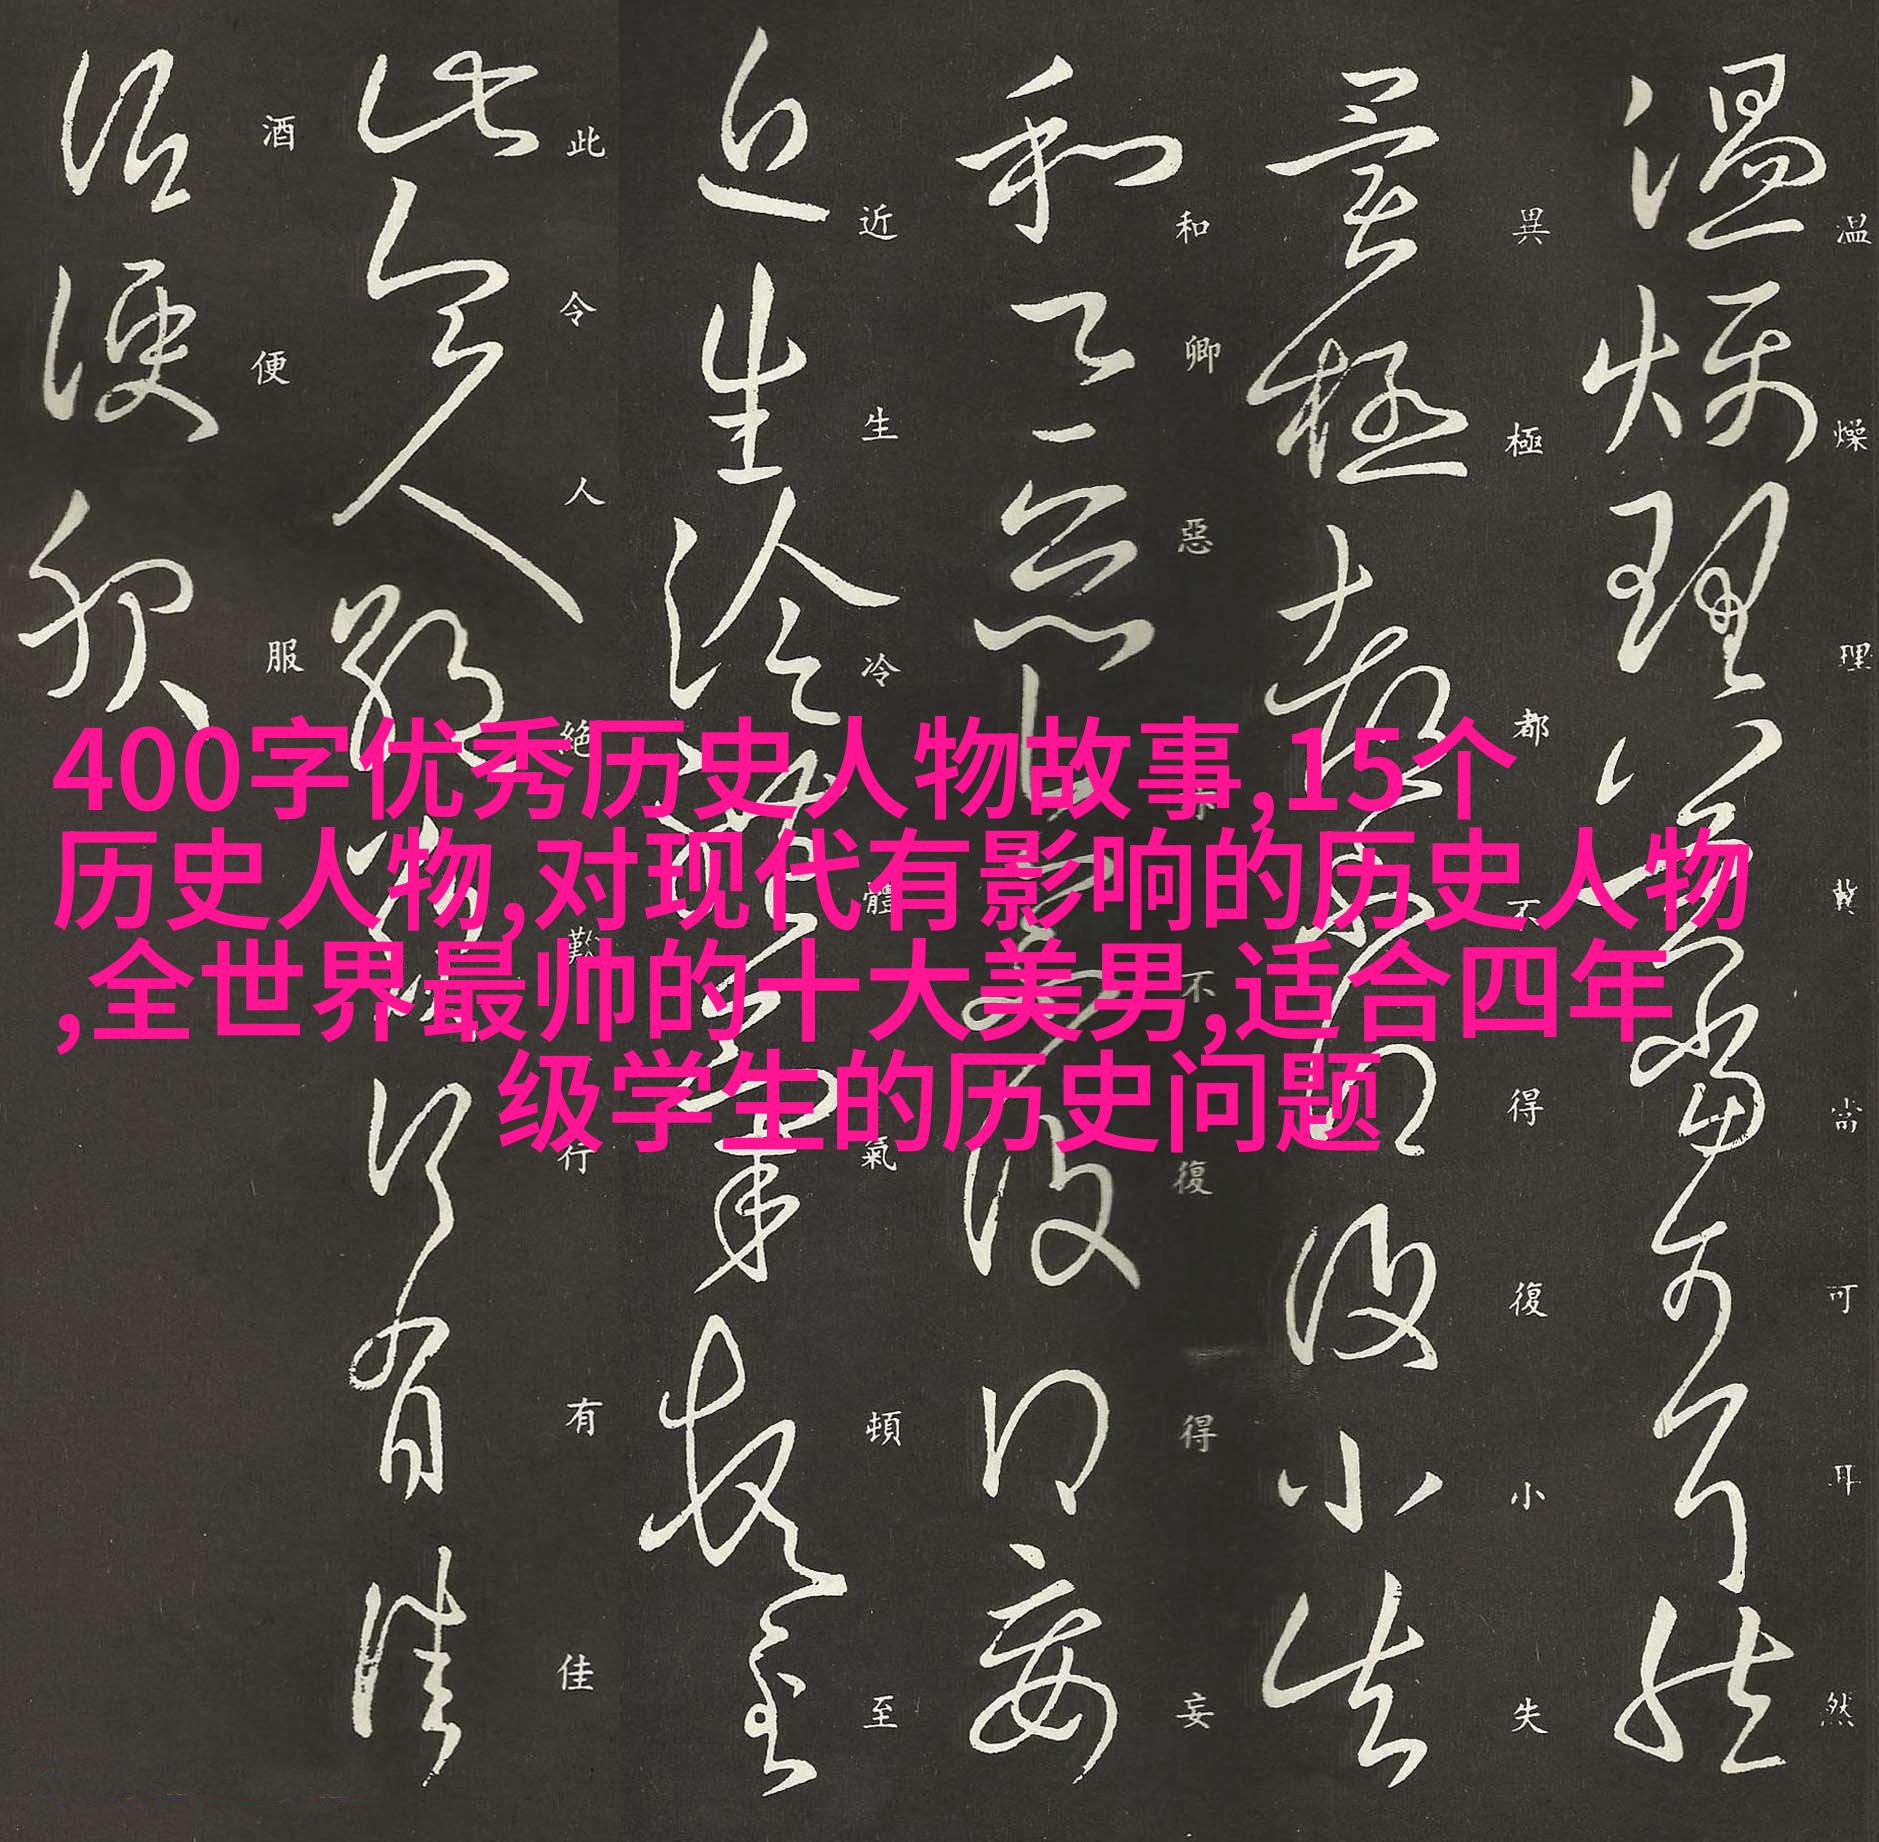 400字优秀历史人物故事,15个
历史人物,对现代有影响的历史人物
,全世界最帅的十大美男,适合四年
级学生的历史问题
温燥理當可耳然
異極都不得復小失
和卿惡不復得妄
近生冷體氣頓至
此令人絕歎行有佳
酒便服